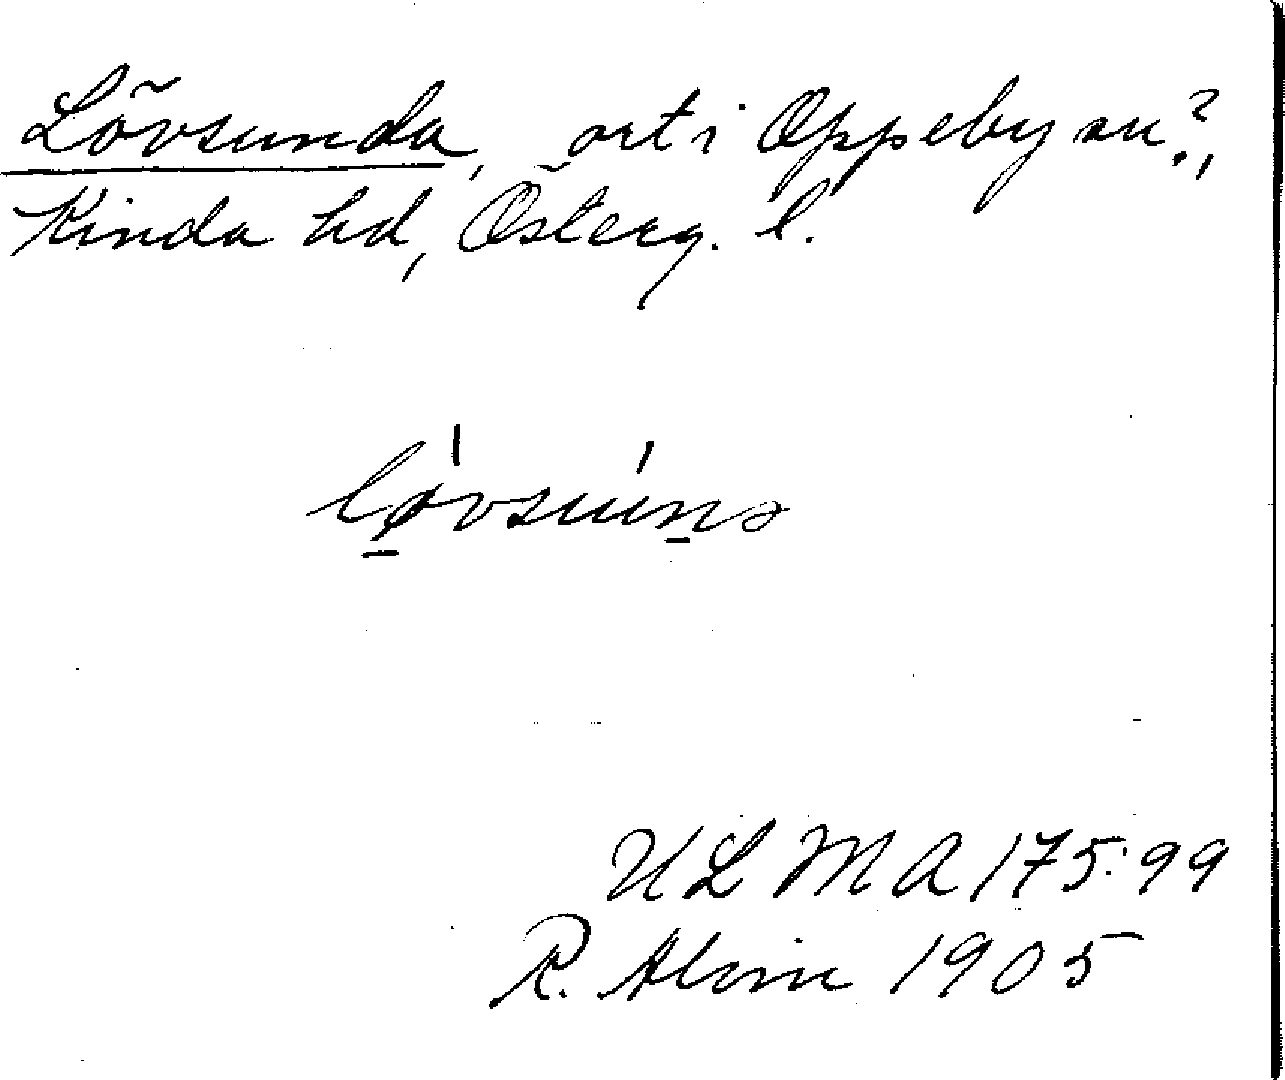 Lövsunda, ort i Oppeby sn?,
Kinda hd, Österg. l.
lø̱vsuṉə
ULMA 175:99
R. Alvin 1905